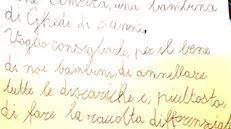 una bambina
di Ghedi di 8 anni.
Voglio consigliarle, per il bene
di noi bambini, di annellare
tutte le discariche e, piuttosto,
di fare la raccolta differenziata